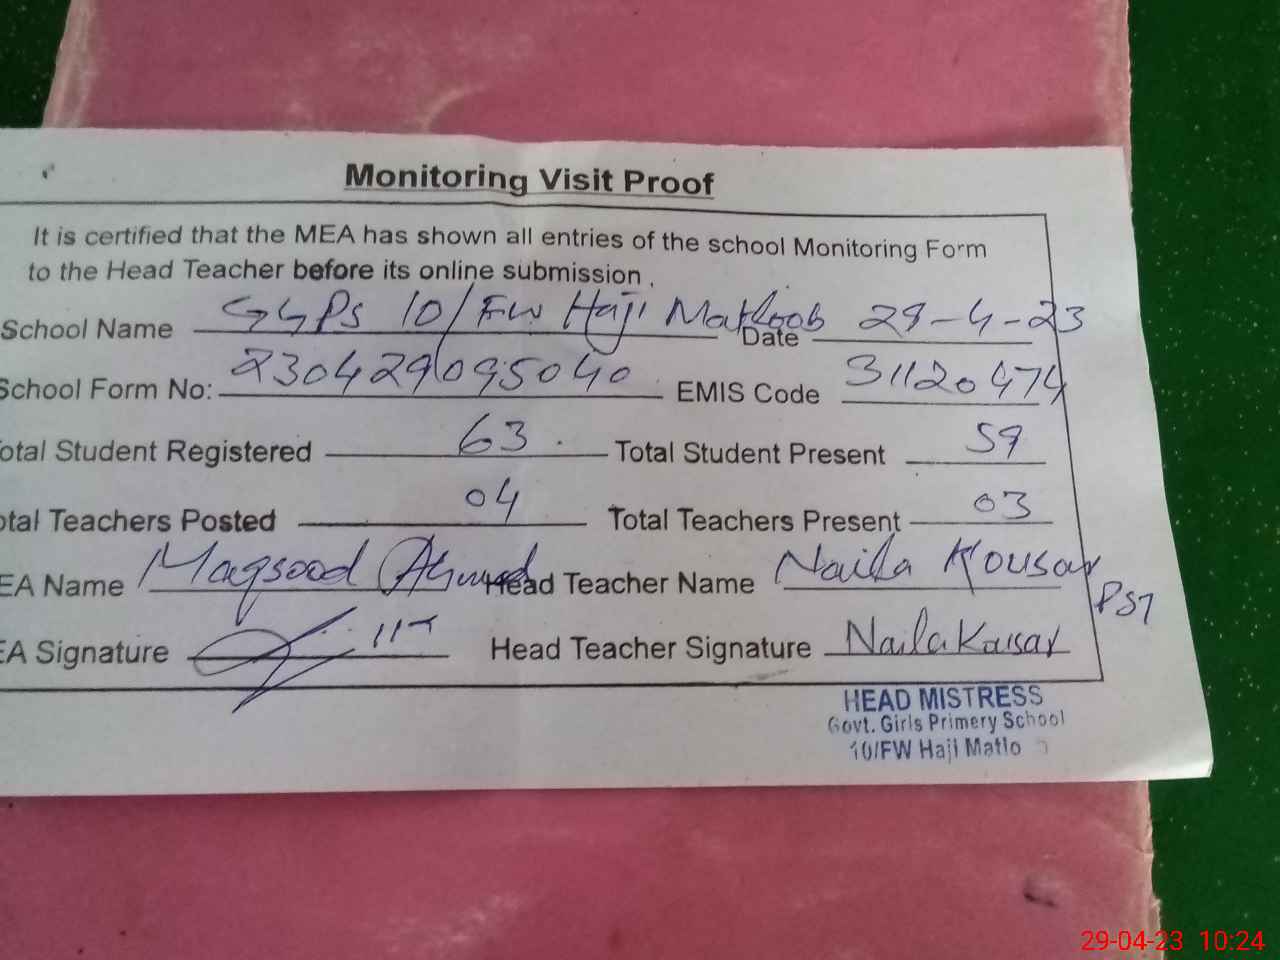 Monitoring Visit Proof
It is certified that the MEA has shown all entries of the school Monitoring Form
to the Head Teacher before its online submission .
School Name GGPS 10/FW Haji Matloob Date 29-4-23
School Form No: 230429095040 EMIS Code 31120474
otal Student Registered 63 . Total Student Present 59
otal Teachers Posted 04 Total Teachers Present 03
EA Name Maqsood Ahmed Head Teacher Name Naila Kousar
PST
EA Signature Head Teacher Signature Naila Kausar
HEAD MISTRESS
Govt. Girls Primery School
10/FW Haji Matlo
29-04-23 10:24